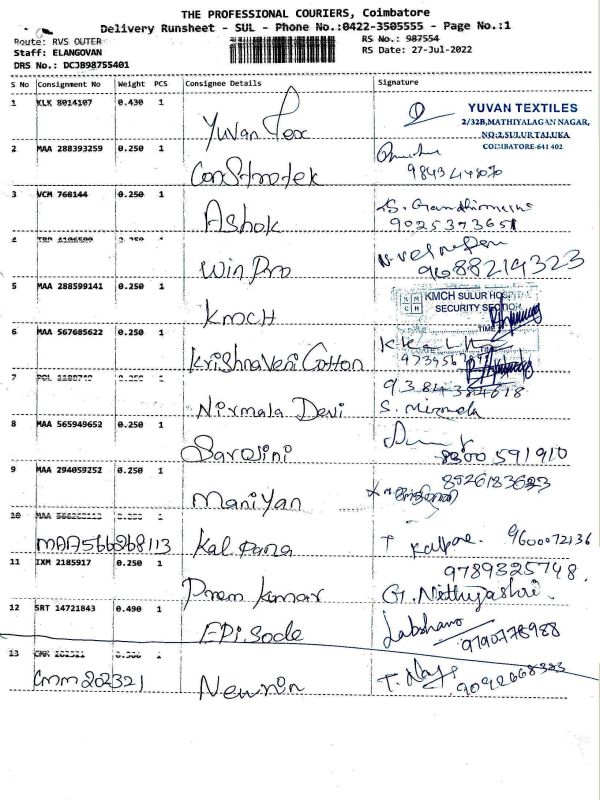 THE PROFESSIONAL COURIERS, Coimbatore
Delivery Runsheet - SUL - Phone No.:0422-3505555 - Page No.:1
Route: RVS OUTER
RS No.: 987554
Staff: ELANGOVAN
RS Date: 27-Jul-2022
DRS No.: DCJB98755401
S No Consignment No Weight PCS Consignee Details Signature
1 KLK 8014107 0.430 1 Yuvan Tex
YUVAN TEXTILES
2/32B,MATHIYALAGAN NAGAR,
NO:2,SULUR TALUKA
COIMBATORE-641 402
2 MAA 288393259 0.250 1 Constrotek
3 VCM 768144 0.250 1 Ashok
9025373651
4 Win Pro
9688214323
5 MAA 288599141 0.250 1 KMCH
KMCH SULUR HOSPITAL
SECURITY SECTION
TIME
6 MAA 567685622 0.250 1 Krishnaveni Cotton
DATE TIME
7 1 Nirmala Devi
9384384618
S. Nirmala
8 MAA 565949652 0.250 1 Sarojini
8300591910
9 MAA 294059252 0.250 1 Maniyan
8526183623
10 1
MAA566268113 Kalpana T Kalpana. 9600072136
11 IXM 2185917 0.250 1 Prem kumar
9789325748.
G. Nithyashri.
12 SRT 14721843 0.490 1 EPisode
9790778988
13 1
CMM202321 Newrin
9092668323